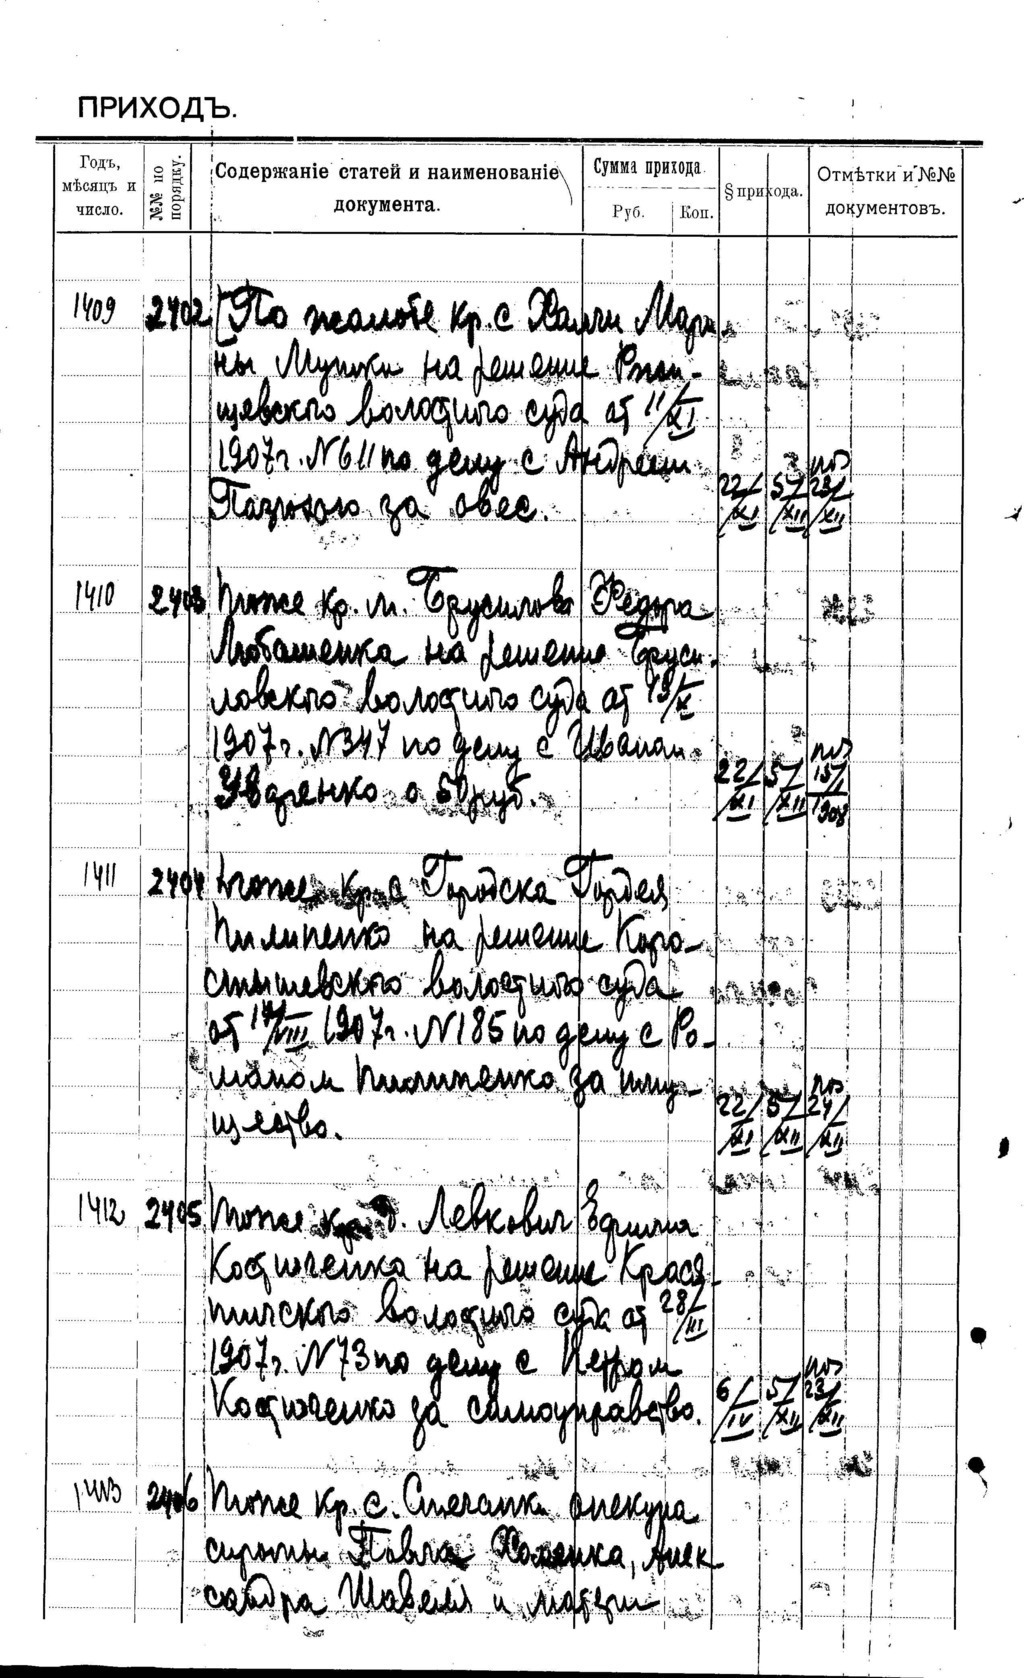 ПРИХОДЪ.
Годъ, мѣсяцъ и число.
№№ по порядку.
Содержаніе статей и наименованіе документа.
Сумма прихода.
Руб. Коп.
§ прихода.
Отмѣтки и №№ документовъ.
1409 2402 По жалобе кр. с Халчи Мари
ны Мупики на решение Ржи-
щевского волостного суда от 11/XI
1907 г. N 611 по делу с Андреем
за овес. 22/XI 5/XII 23/XII
1410 2403 Тоже кр. м. Брусилова Федора
Любашенка на решение Бруси-
ловского волостного суда от 19/X
1907 г. N 347 по делу с Иваном
о 50 руб. 22/XI 5/XII 15/I 1908
1411 2404 Тоже кр. с Городска Гордея
Пилипенко на решение Коро-
стышевского волостного суда
от 17/VIII 1907 г. N 185 по делу с Ро-
маном Пилипенко за иму-
щество. 22/XI 5/XII 24/XII
1412 2405 Тоже кр. д. Левкович Ефима
Костюченка на решение Крася-
тичского волостного суда от 28/III
1907 г. N 73 по делу с Петром
Костюченко за самоуправство. 6/IV 5/XII 23/XII
1413 2406 Тоже кр. с. опекуна
сироты Павла Хоменка, Алек
сандра Шавеля и матери